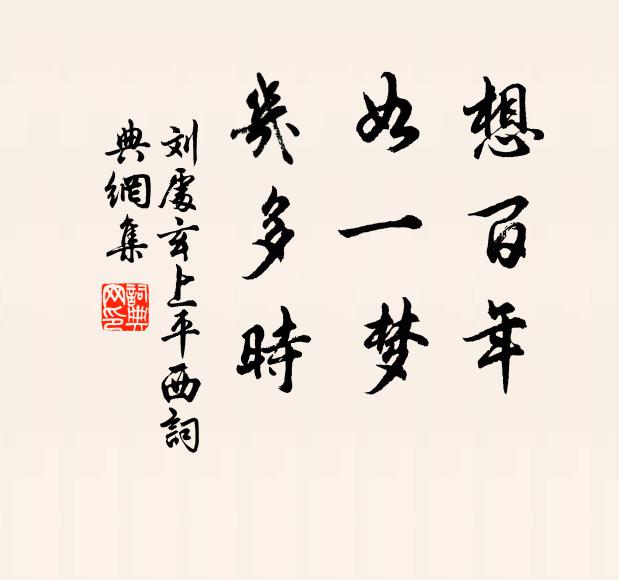 想百年
如一梦
幾多時
刘處玄上平西詞
典網集
詞典
网印